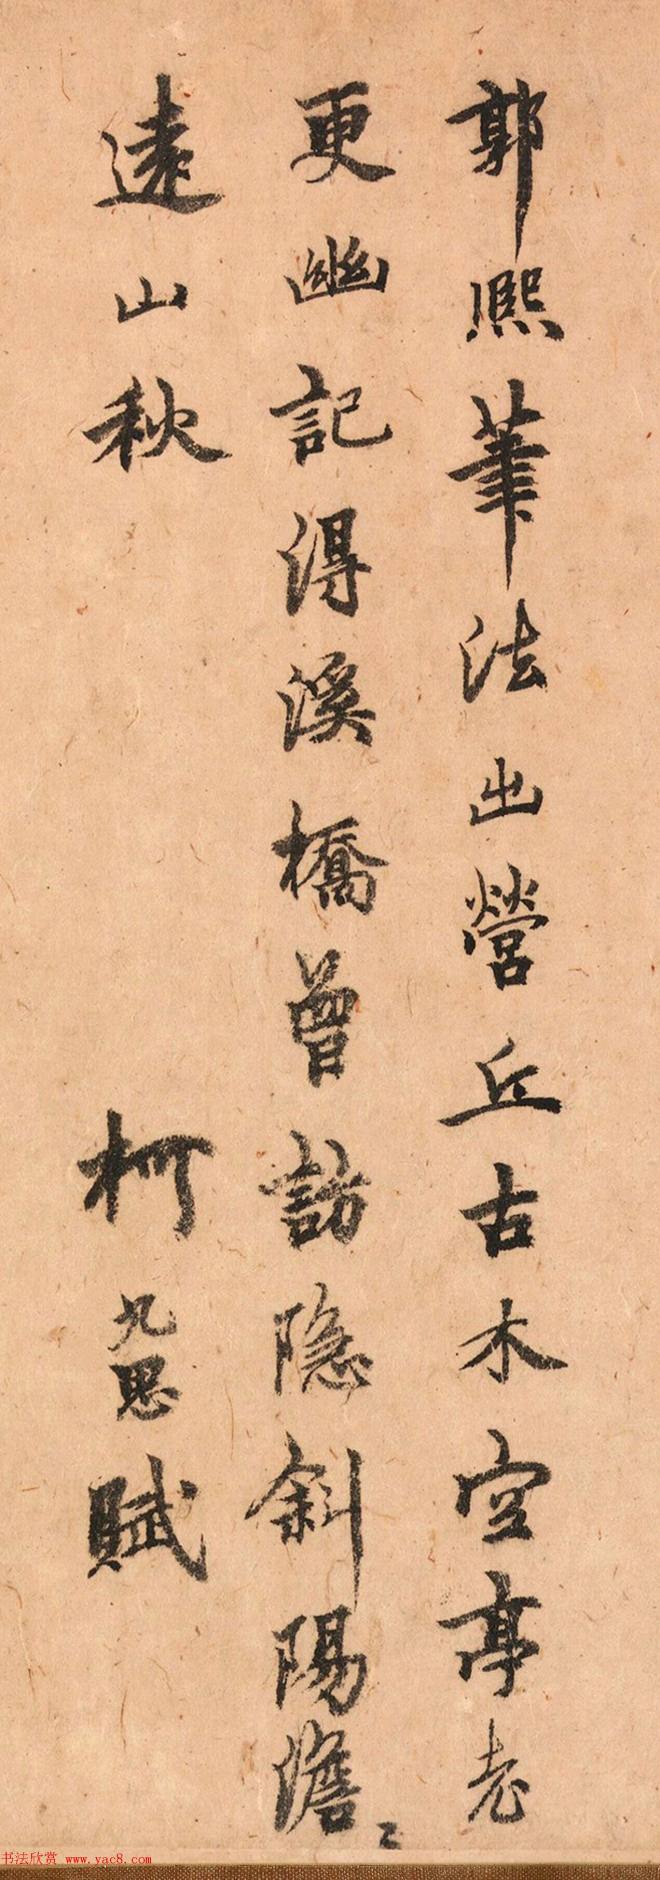 郭熙筆法出營丘古木空亭老
更幽記得溪橋曾訪隐斜陽澹〻
遠山秋 柯九思賦
书法欣赏 www.yac8.com